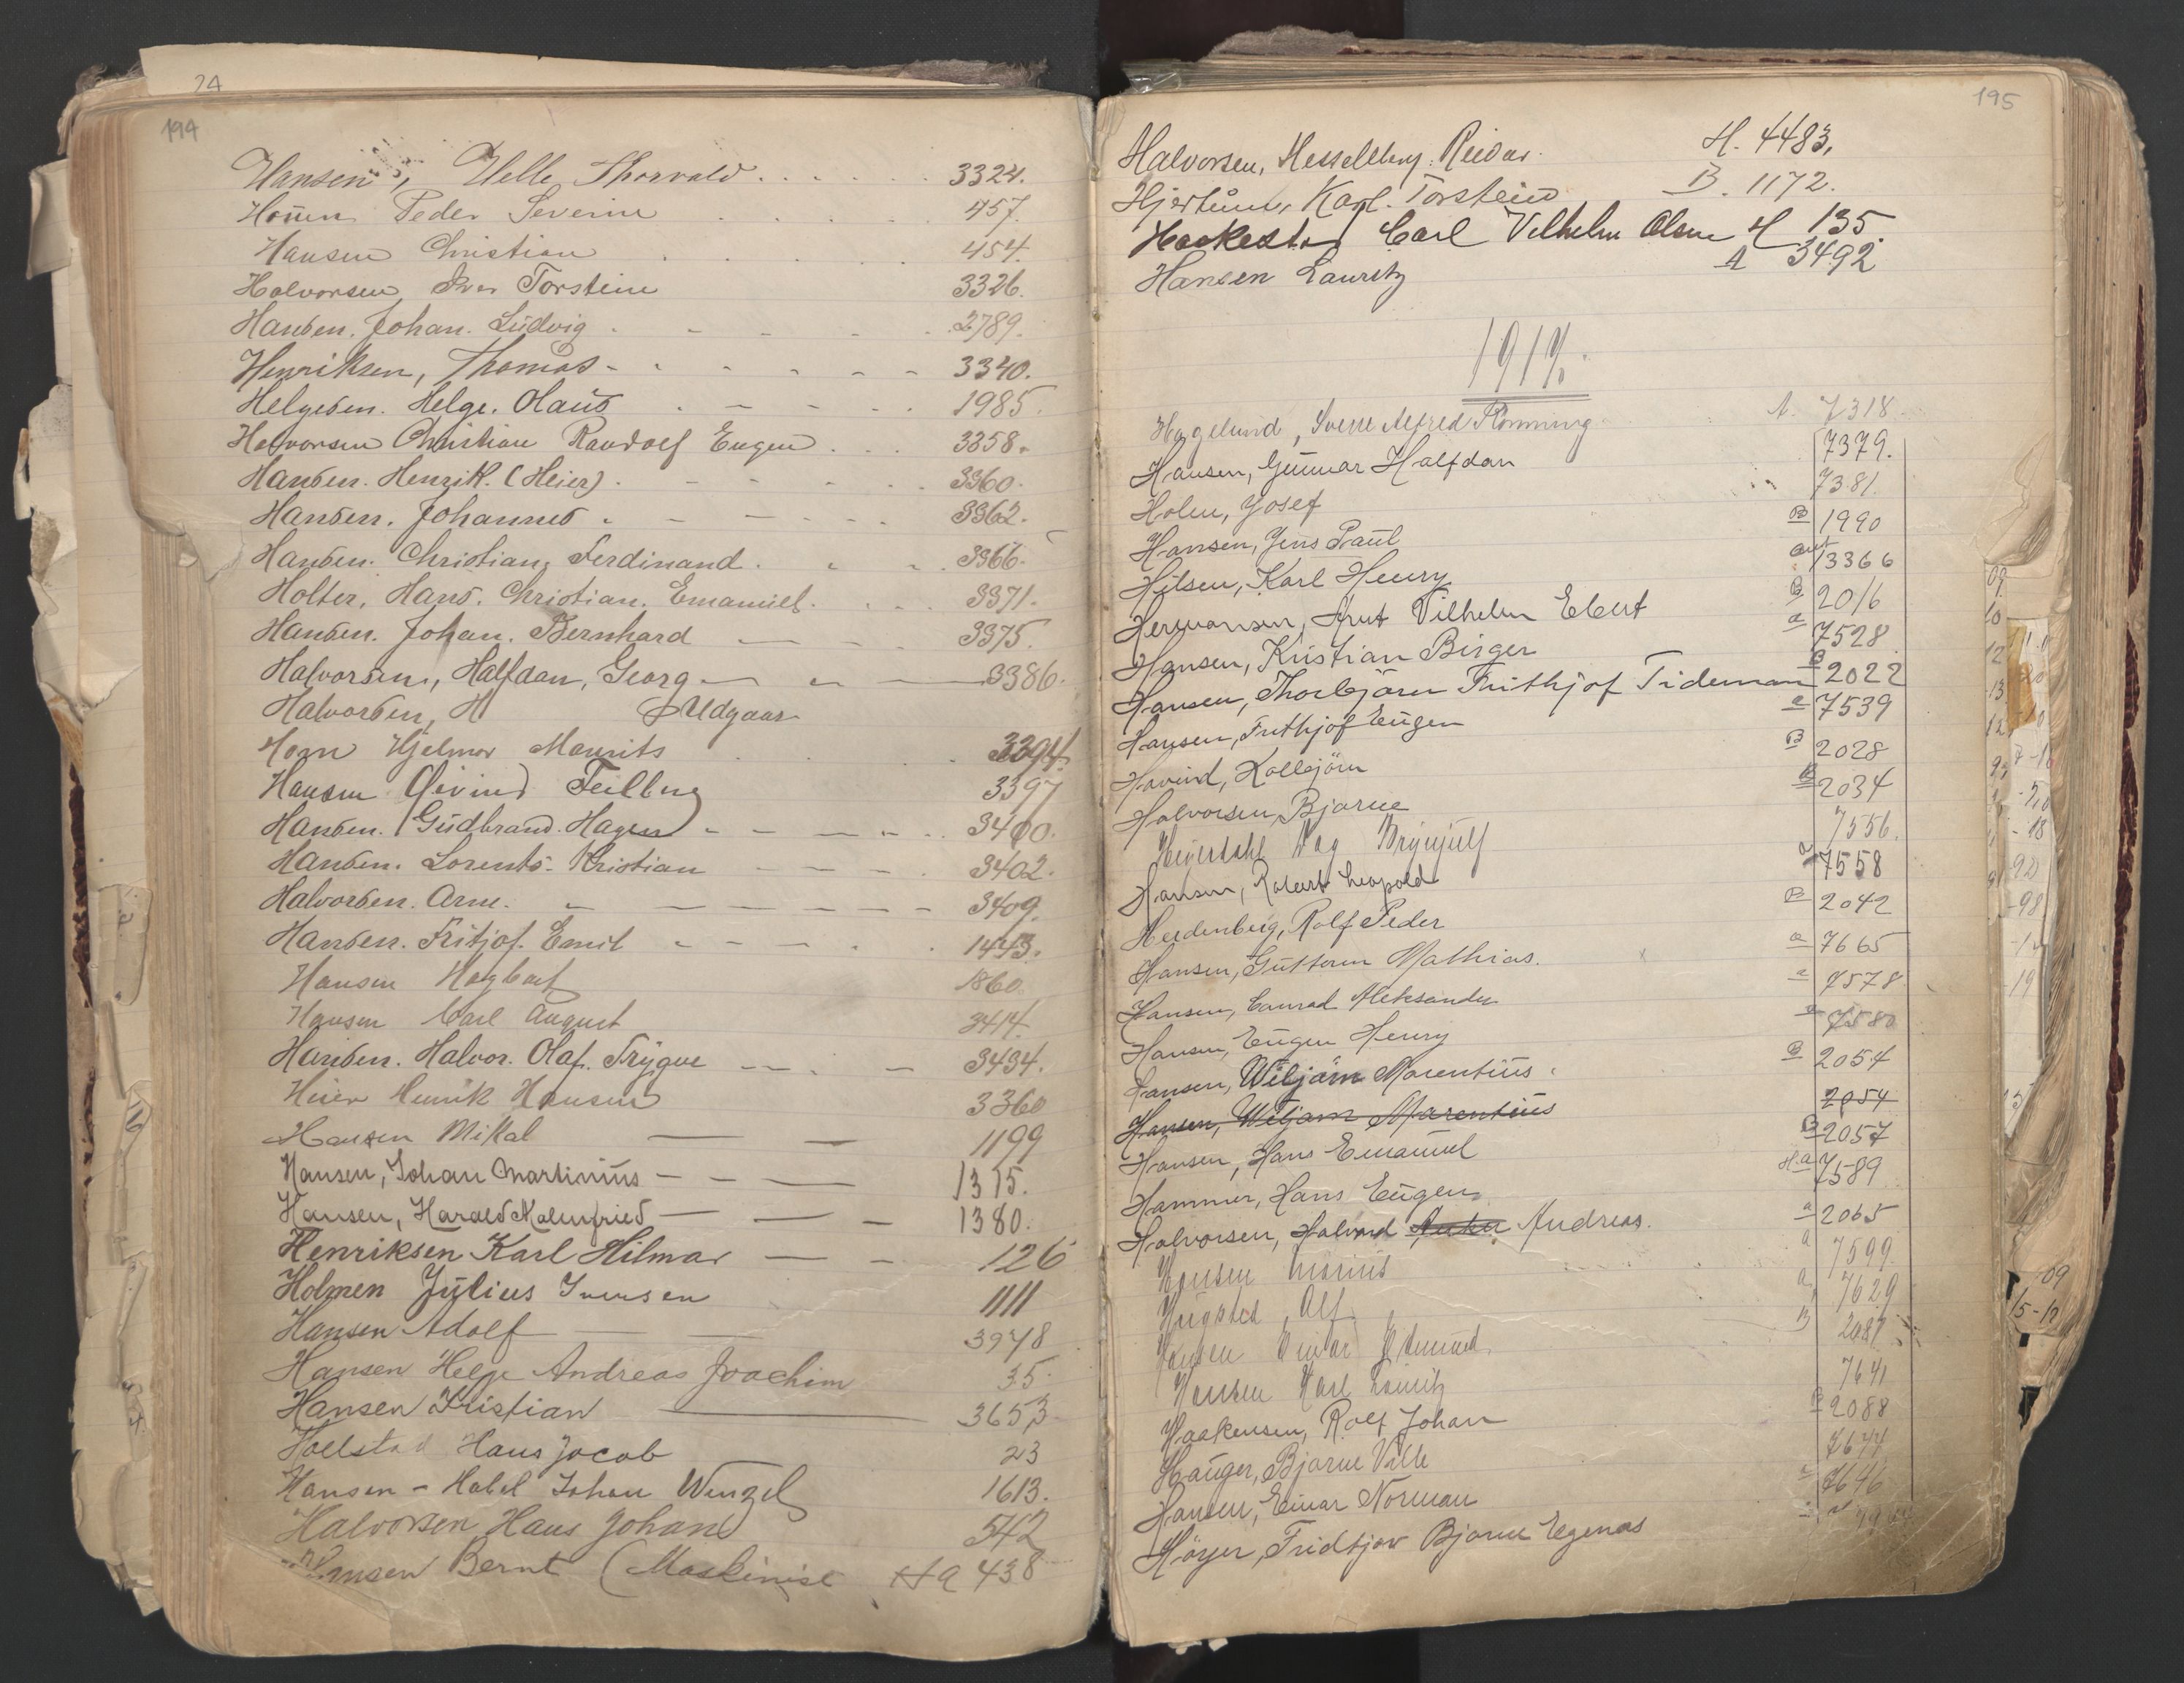 24
194
Hansen, Helle Thorvald 3324.
Peder Severin 457.
Hansen Christian 454.
Halvorsen Iver Torstein 3326.
Hansen. Johan. Ludvig 2789.
Henriksen, Thomas 3340.
Helgesen. Helge. Olaus 1985.
Halvorsen Christian Randolf Eugen 3358.
Hansen. Henrik. (Heier) 3360.
Hansen. Johannes 3362.
Hansen. Christian. Ferdinand 3366.
Holter, Hans. Christian. Emanuel 3371.
Hansen. Johan. Bernhard 3375.
Halvorsen, Halfdan, Georg 3386.
Halvorsen, H Udgaar
Horn Hjelmar Maurits 3394.
Hansen Øivind Feilberg 3397
Hansen. Gudbrand. Hagen 3400.
Hansen. Lorents. Kristian 3402.
Halvorsen. Arne. 3409.
Hansen. Fritjof. Emil 1443.
Hansen Hagbart 1860.
Hansen Carl August 3414.
Hansen. Halvor. Olaf. Trygve 3434.
Heier Henrik Hansen 3360
Hansen Mikal 1199
Hansen, Johan Martinius 1315.
Hansen, Harald Malmfried 1380.
Henriksen Karl Hilmar 126
Holmen Julius Iversen 1111
Hansen Adolf 3978
Hansen Helge Andreas Joachim 35.
Hansen Kristian 3653
Hollstad Hans Jacob 23
Hansen - Habel Johan Wenzel 1613.
Halvorsen Hans Johan 542
Hansen Bernt (Maskinist Ha 438
195
Halvorsen, Hesselberg. Reidar. H. 4483.
Karl. Torstein B. 1172.
Haakestad Carl Vilhelm Olsen H 135.
Hansen Lauritz A 3492
1917.
Hagelund, Sverre Alfred Rønning A. 7318
Hansen, Gunnar Halfdan 7379.
Holm, Josef 7381
Hansen, Jens Paul B 1990
Hilsen, Karl Henry 13366
Hermansen, Arnt Vilhelm Ebert B 2016
Hansen, Kristian Birger a 7528
Hansen, Thorbjörn Frithjof Tideman B 2022
Hansen, Frithjof Eugen a 7539
Havind, Kolbjörn B 2028
Halvorsen, Bjarne B 2034
Heyerdahl Dag Brynjulf 7556.
Hansen, Robert Leopold a 7558
Hedenberg, Rolf Peder B 2042
Hansen, Guttorm Mathias. a 7665
Hansen, Conrad Aleksander a 7578
Hansen, Eugen Henry a 7580
Hansen, Wiljam Marentius B 2054
Hansen, Wiljam Marentius 2054
Hansen, Hans Emanuel B 2057
Hammer, Hans Eugen H.a 7589
Halvorsen, Halvard Andreas. a 2065
Hansen Marius a 7599
Hugsted, Alf a 7629
Hansen Einar Edmund B 2087
Hansen Karl Lauritz 7641
Haakensen, Rolf Johan B 2088
Hauger, Bjarne Ville 7644
Hansen, Einar Norman a 7646
Höyer, Fridtjov Bjarne Egenæs